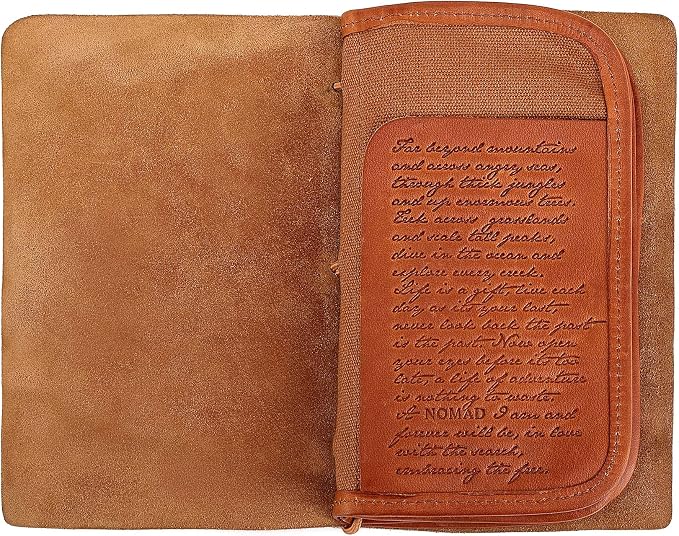 Far beyond mountains
and across angry seas,
through thick jungles
and up enormous trees.
Trek across grasslands
and scale tall peaks,
dive in the ocean and
explore every creek.
Life is a gift, live each
day as its your last,
never look back the past
is the past. Now open
your eyes before its too
late, a life of adventure
is nothing to waste.
A NOMAD I am and
forever will be, in love
with the search,
embracing the free.